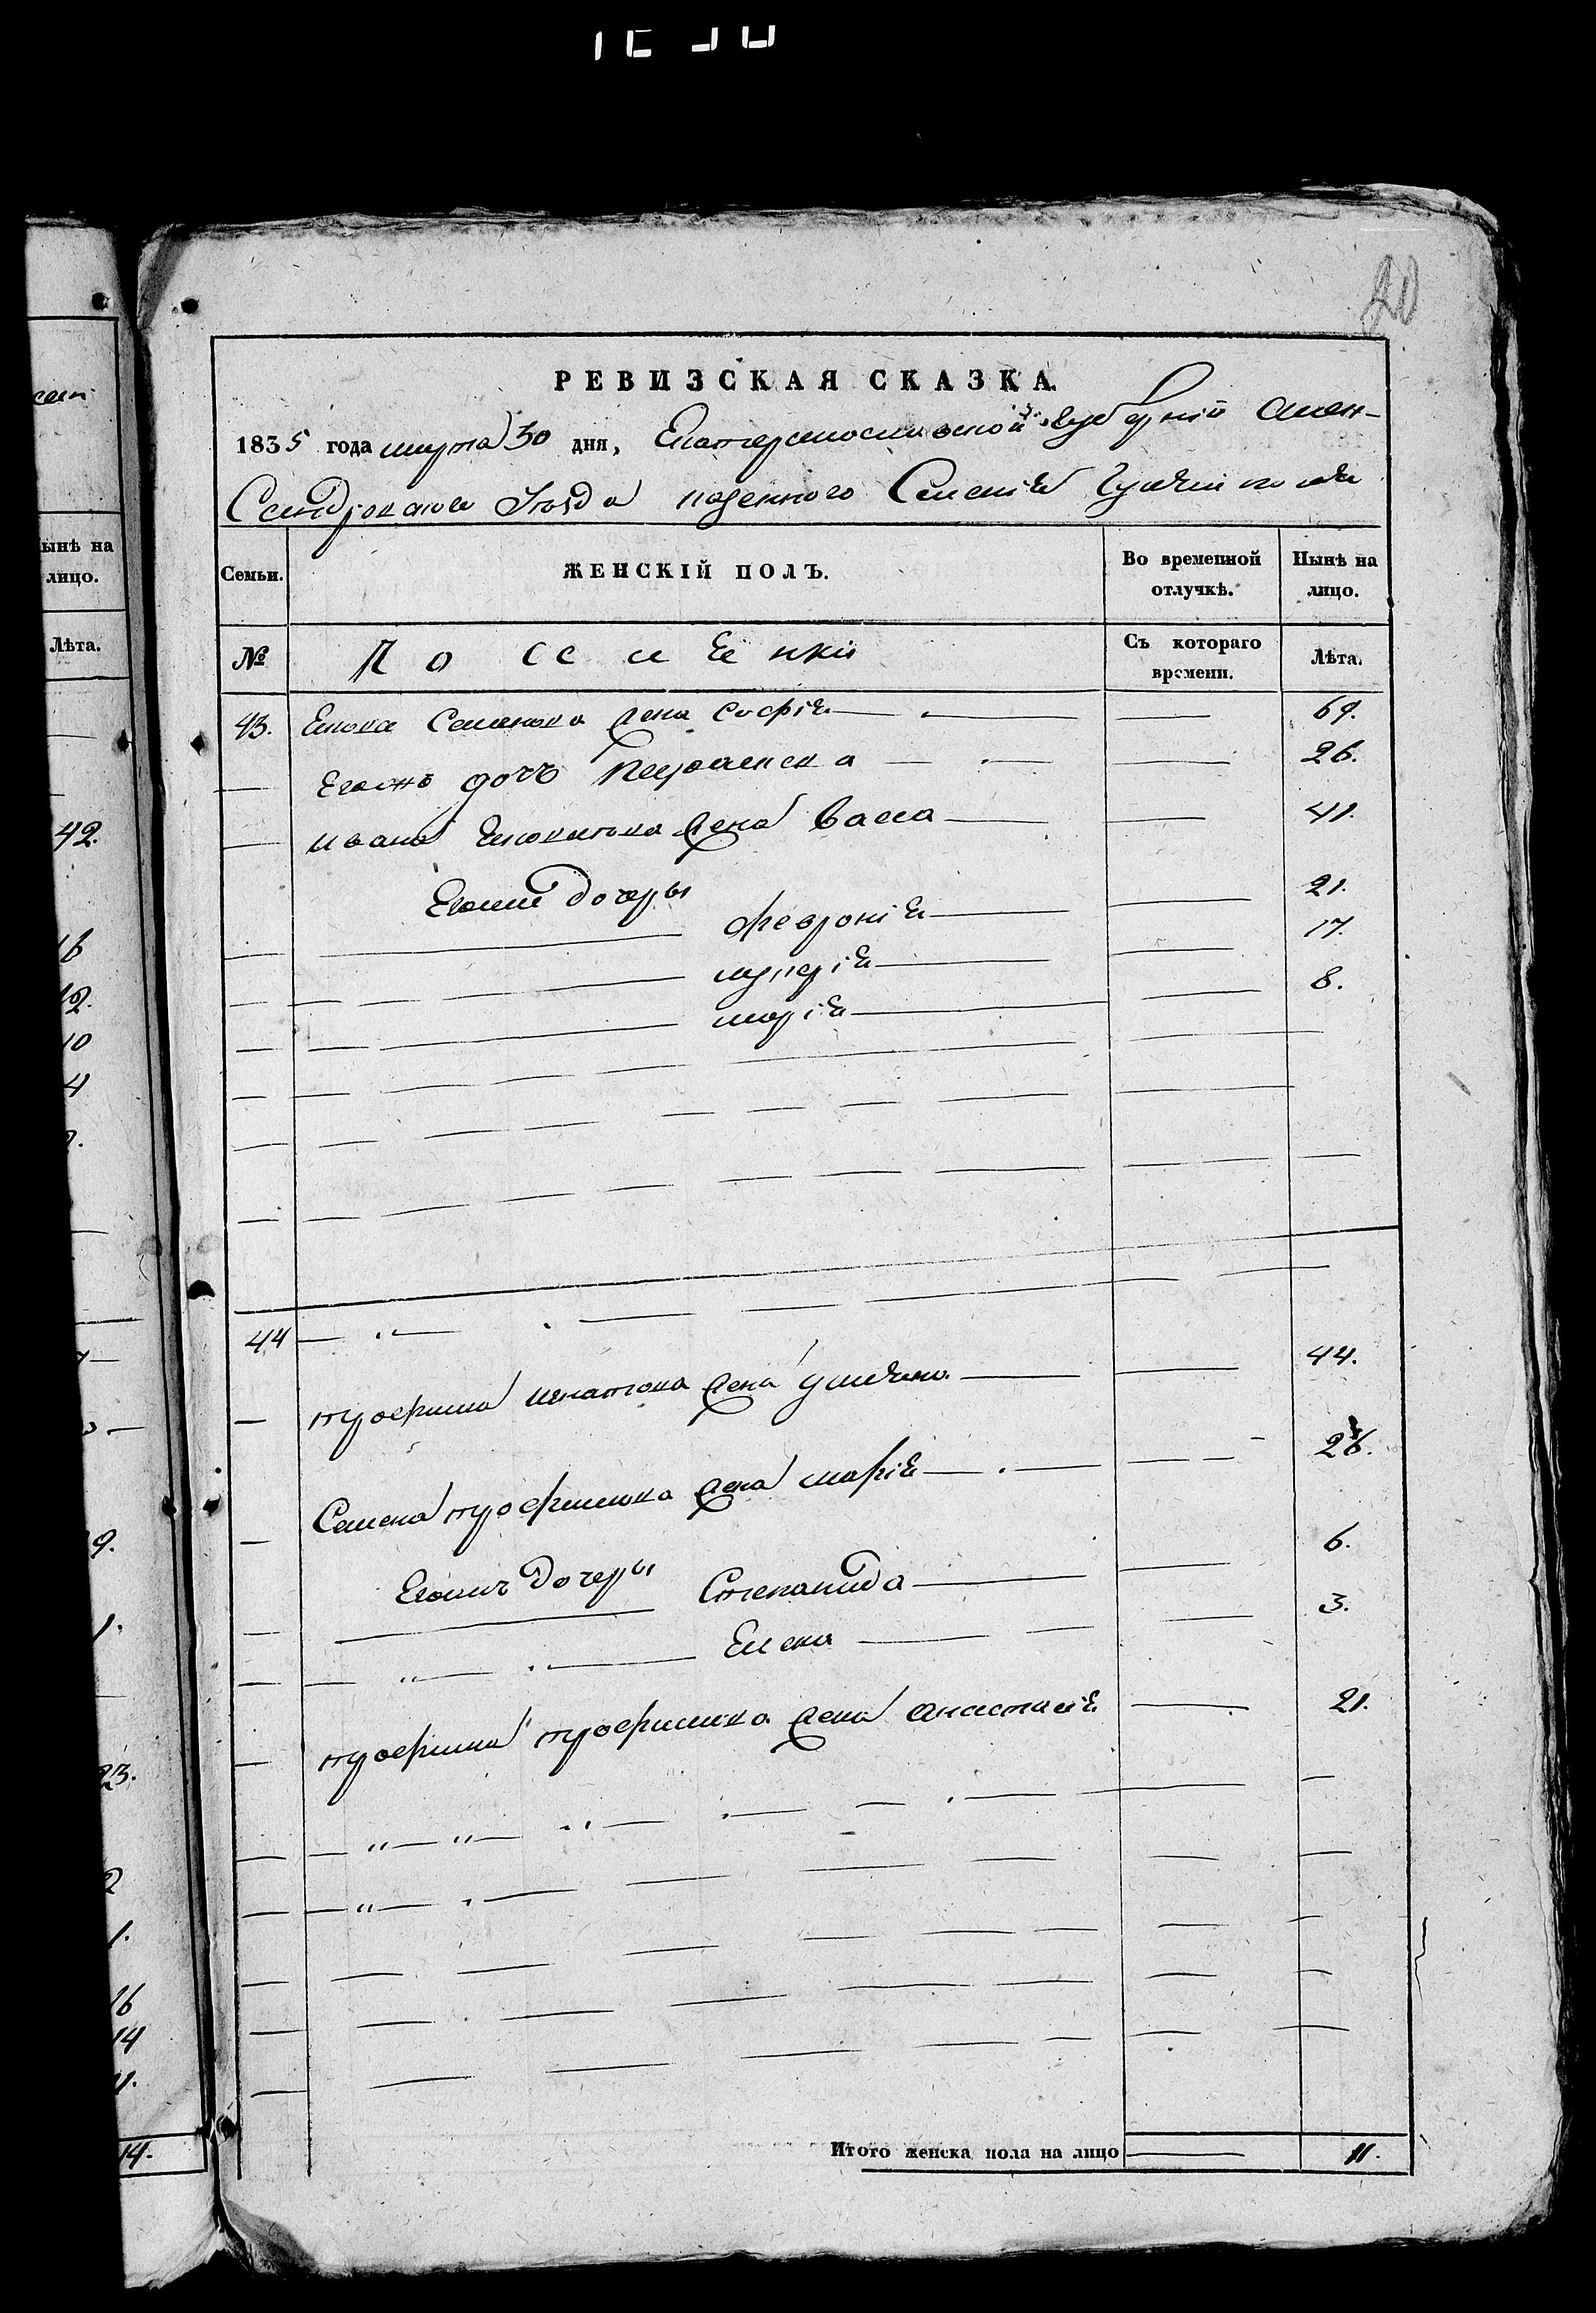 20
РЕВИЗСКАЯ СКАЗКА.
1835 года марта 30 дня, Екатеринославской губернии Алек-
сандровскаго уезда казенного Селения
Семьи. ЖЕНСКІЙ ПОЛЪ. Во временной отлучкѣ. Нынѣ на лицо.
№ Поселенки Съ котораго времени. Лѣта.
43. Семенова жена Софія 69.
Егожъ дочь 26.
Ивана жена Васса 41.
Его дочеры
Феврония 21.
17.
марія 8.
44
трофима игнатова жена ульяна 44.
Семена трофимова жена марія 26.
Его дочеры Степанида 6.
Елена 3.
трофима трофимова жена анастасія 21.
Итого женска пола на лицо 11.
ынѣ на
лицо.
Лѣта.
42.
16
12.
10
4
9.
1.
23.
2
1.
16
14
14.